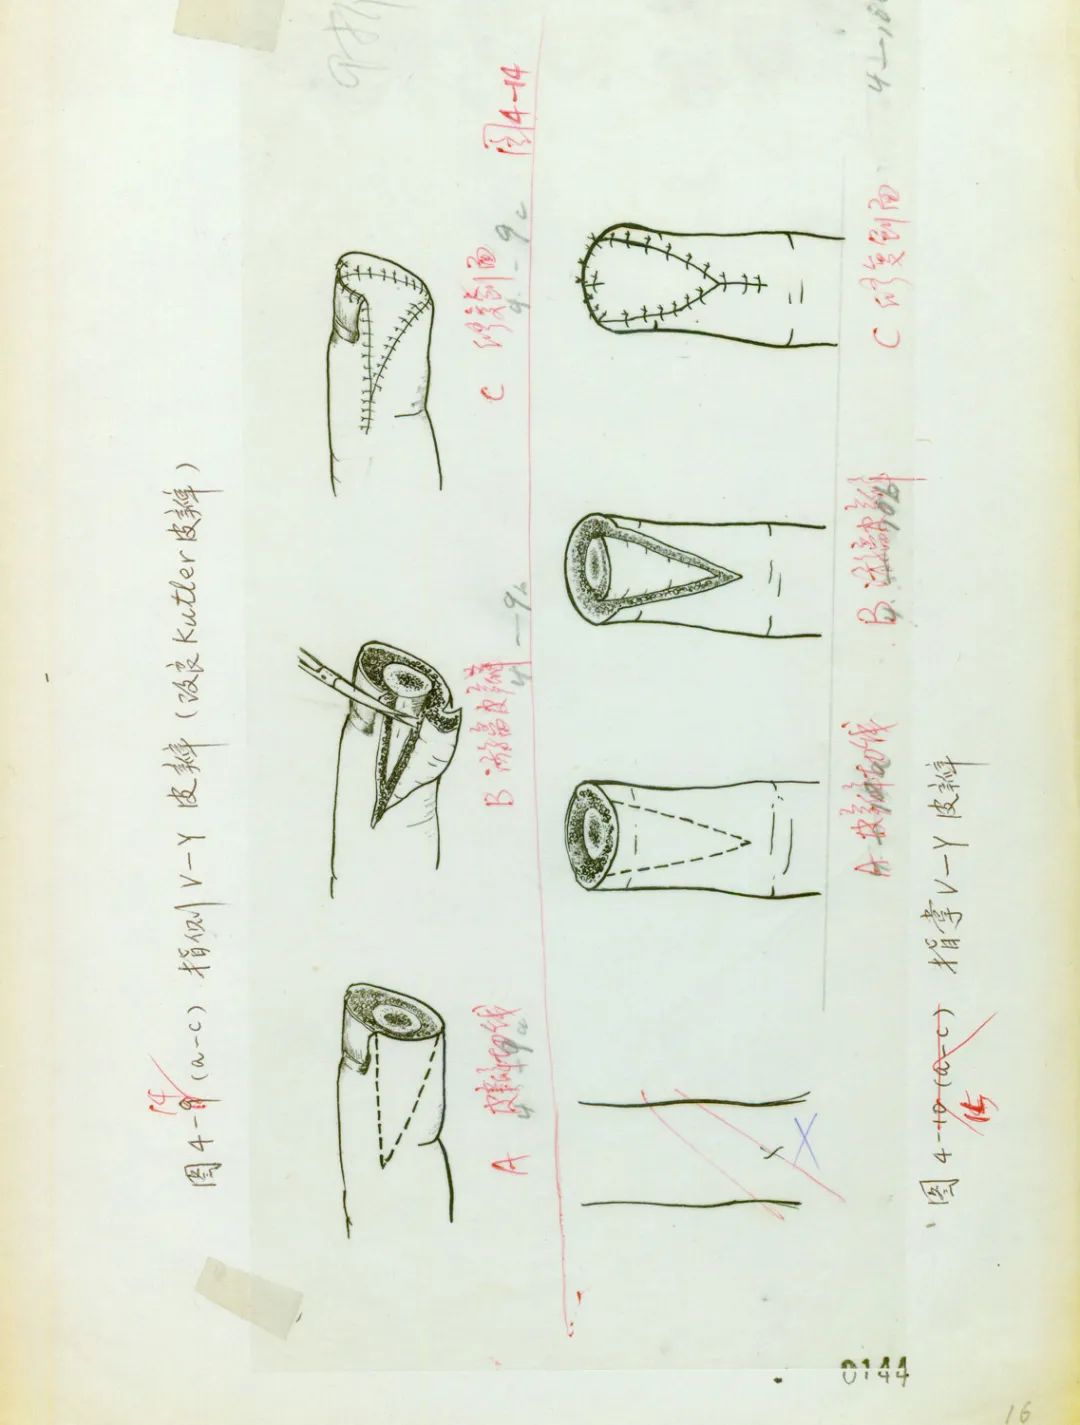 图4-9 (a-c) 指侧V-Y皮瓣(改良Kutler皮瓣)
14
A 皮瓣切线
4-9a
B 游离皮瓣
4-9b
C 修复创面
4-9c
图4-14
A 皮瓣切线
B 游离皮瓣
C 修复创面
图4-10(a-c) 指掌V-Y皮瓣
15
0144
16